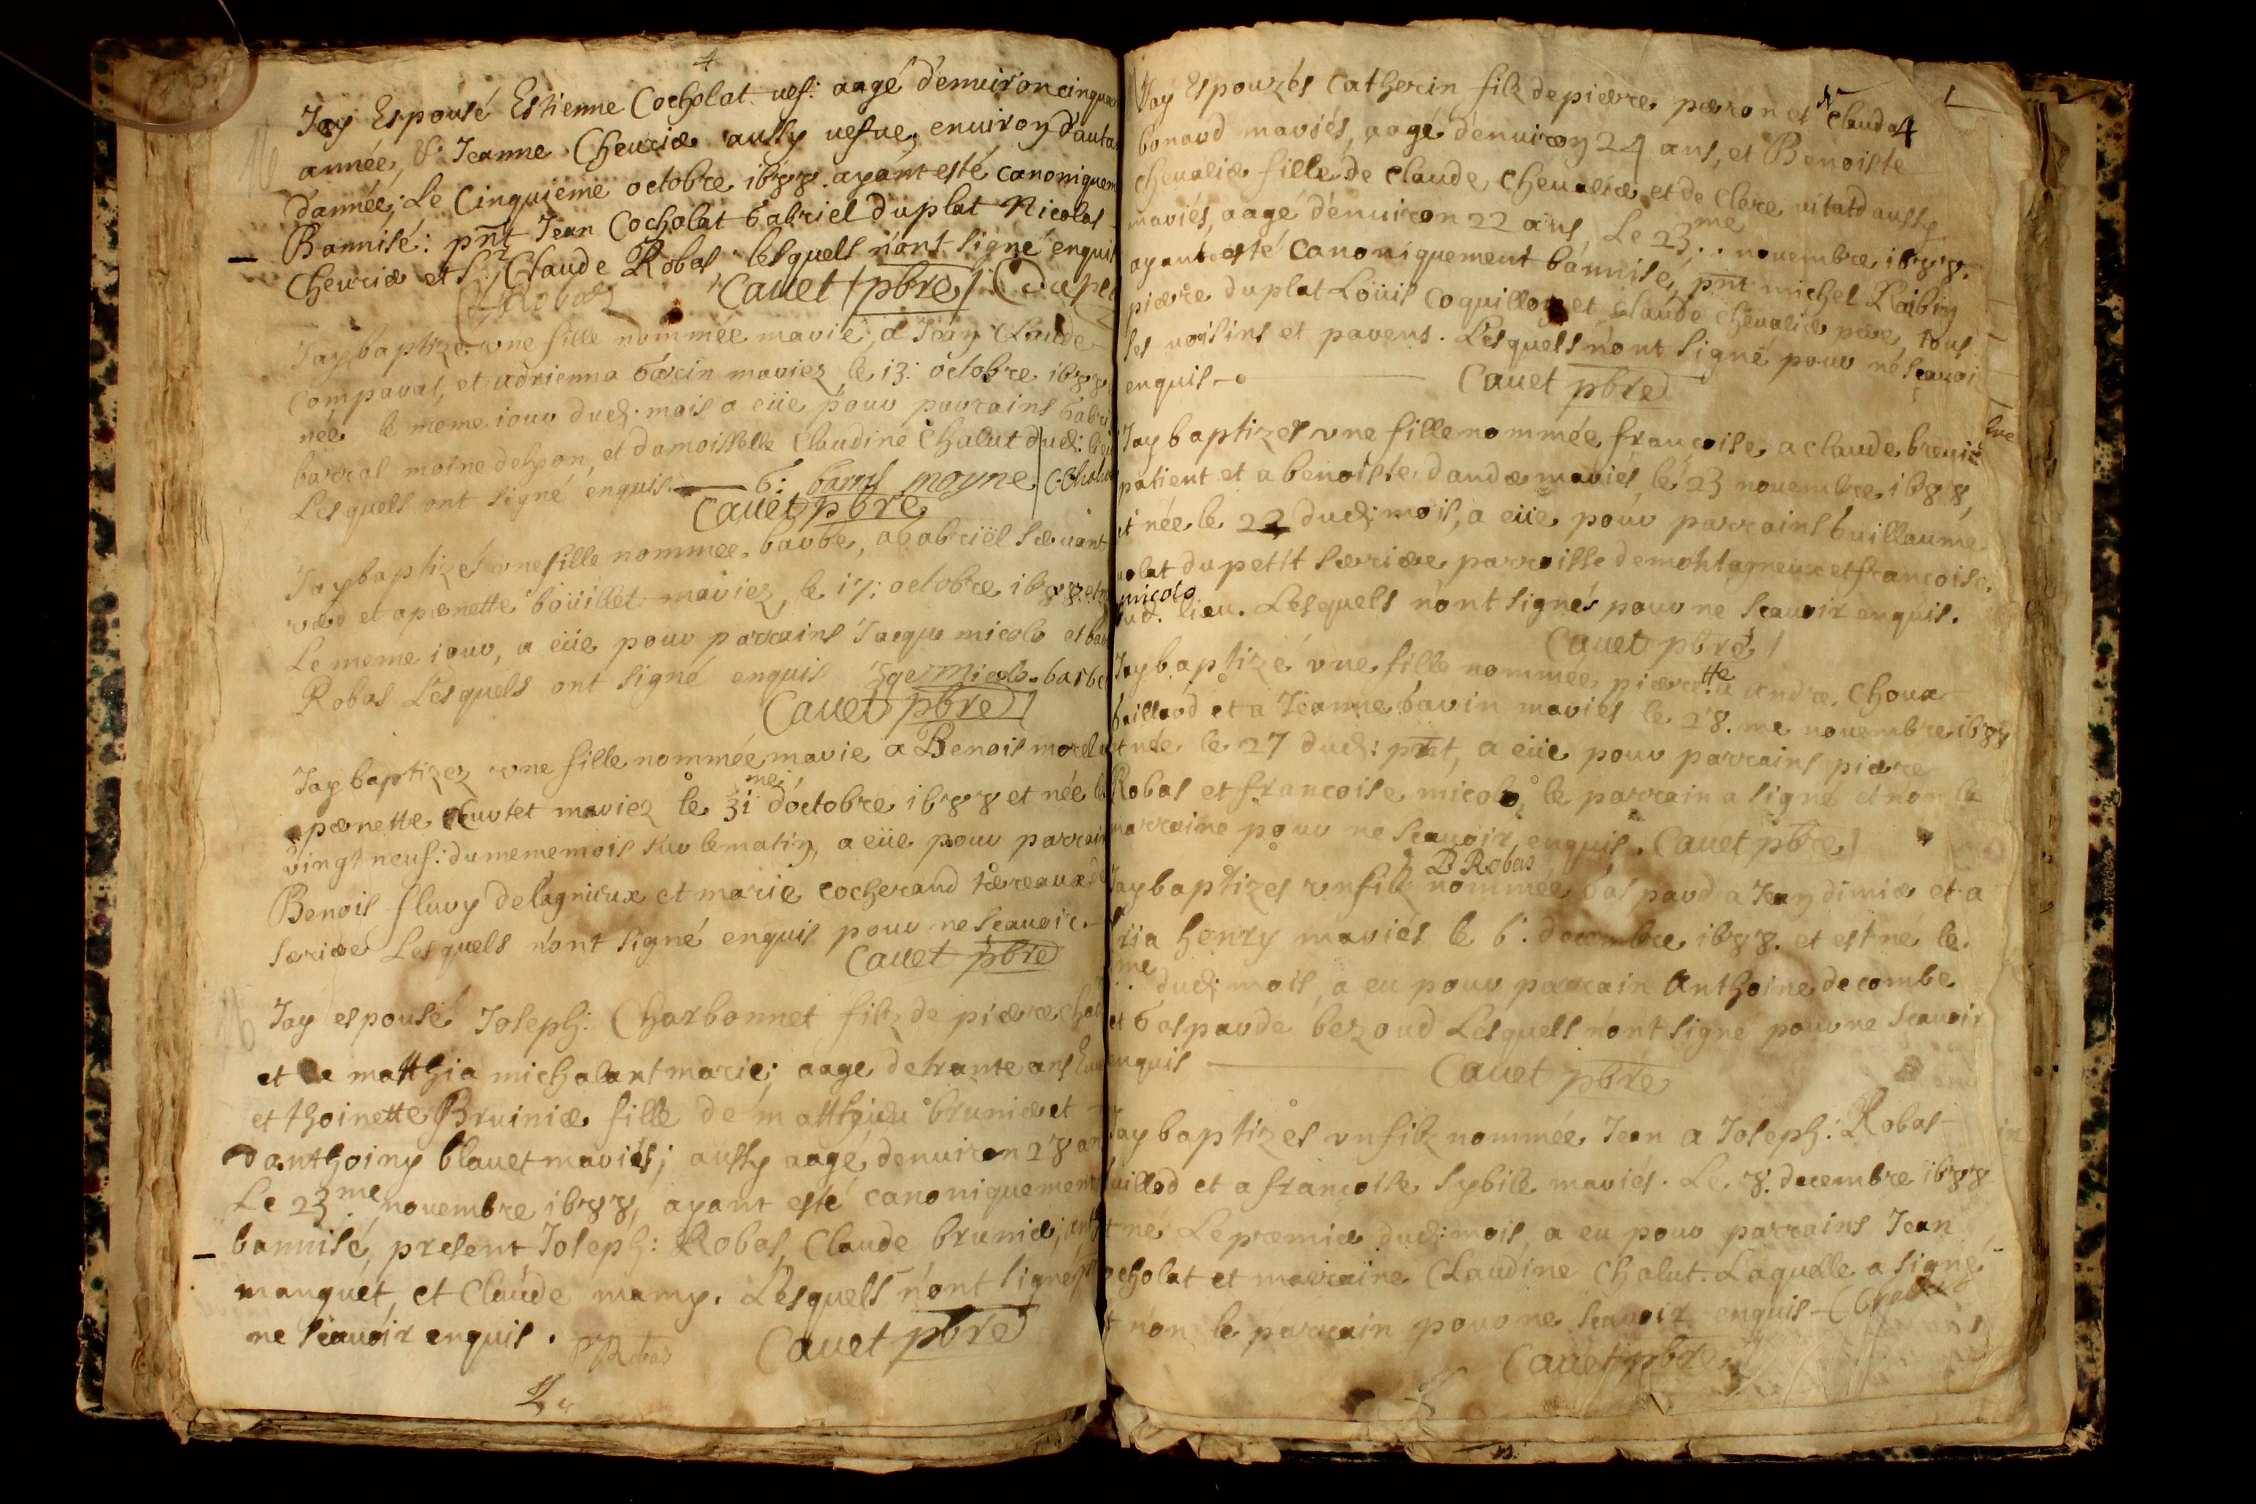 4
Jay Espousé Estienne Cocholat uef: aagé d'enuiron cinquan
année, & Jeanne Cheuriæ aussy uefue, enuiron d'auta
d'année; Le Cinquieme octobre 1688. ayant esté canoniquem
Bannisé: pñt Jean Cocholat Gabriel duplat Nicolas
Cheuriæ et Sr Claude Robas lesquels n'ont signé enquis
C Robas Cauet pbre
Jay baptizé vne fille nommée marie, a Jean Claude
Comparat, et adrienna Garcin mariez le 13: octobre 1688
née le meme iour dud: mois a eüe pour parrains Gabri
barral moine de , et damoisselle Claudine Chalut dud: lieu
Lesquels ont signé enquis. G: barral moyne C. Chalut
Cauet pbre
Jay baptizés vne fille nommée barbe, a Gabriël Seruant
et a pernette boüillet mariez, le 17: octobre 1688. et n
Le meme iour, a eüe pour parrains Jacque micolo et bar
Robas Lesquels ont signé enquis Jqe Micolo. barbe
Cauet pbre
Jay baptizez vne fille nommée marie a Benois morel
a pernette Cuvtet mariez le 31me d'octobre 1688 et née le
vingt neuf: du meme mois sur le matin, a eüe pour parrain
Benois fluvy de lagnieux et marie cocherand
seriæe Lesquels n'ont signé enquis pour ne scauoir.
Cauet pbre
Jay espousé Joseph: Charbonnet filz de pierre char
et de matthia michalant marie; aage de trante ans
et thoinette Bruiniæ fille de matthieu bruniæ et
d'anthoiny blauet mariés; aussy aagé, denuiron 28 an
Le 23me nouembre 1688, ayant esté canoniquement
bannisé, present Joseph: Robas, Claude bruniæ, anth
manguet, et Claude mamy. Lesquels n'ont signé p
ne scauoir enquis. Robas Cauet pbre
4
Jay Espouzés Catherin filz de pierre perron et Clauda
bonard mariés, aagé d'enuiron 24 ans, et Benoiste
cheualiæ fille de Claude, cheualiæ et de Clere uitard aussy
mariés, aagé d'enuiron 22 ans, Le 23.me nouembre 1688.
ayant esté canoniquement bannisé, pñt michel Raibin
pierre duplat Loüis coquillon et Claude cheualiæ père, tous
ses uoisins et parens. Lesquels n'ont signé pour né scauoir
enquis Cauet pbre
Jay baptizés vne fille nommée francoise, a claude breuiæ
patient et a benoiste dandæ mariés, lé 23 nouembre, 1688,
et née le 22 dud: mois, a eüe pour parrains Guillaume
uolat du petit serriæe parroisse de montagneux et francoise
micolo
dud. lieu. Lesquels n'ont signés pour ne scauoir enquis.
Cauet pbre
Jay baptizé vne fille nommée pierrette a andræ Choux
Gaillard et a Jeanne Gavin mariés le 28.me nouembre 1688
et née le 27 dud: pñt, a eüe pour parrains pierre
Robas et francoise micolo, le parrain a signé et non la
marraine pour ne scauoir enquis. Cauet pbre
B Robas
Jay baptizes vn filz nommée Gaspard a Jean dimiæ et a
henry mariés le 6: decembre 1688. et est né le
me dud: mois, a eu pour parrain Anthoine decombe
et Gasparde bezoud Lesquels n'ont signe pour ne Scauoir
enquis Cauet pbre
Jay baptizés vn filz nommée Jean a Joseph: Robas
et a francoise sybille mariés. Le 8. decembre 1688
et né Le premiæ dud: mois, a eu pour parrains Jean
ocholat et marraine Claudine Chalut. Laquelle a signé
et non le parrain pour ne scauoir enquis C Chalut
Cauet pbre